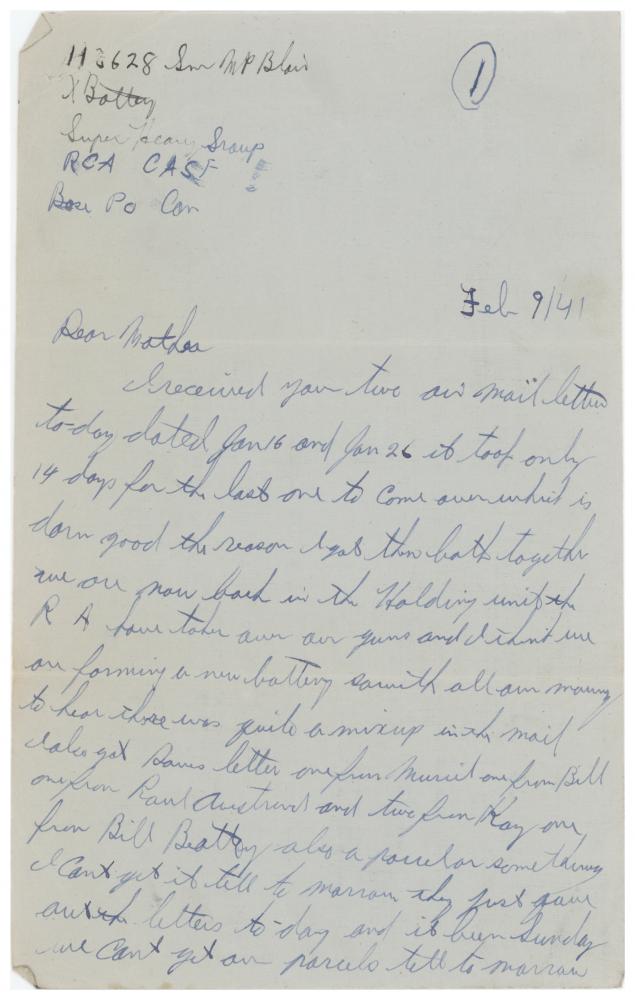 113628 Gnr M P Blair
X Battery
Super Heavy Group
RCA CASF
Base Po Can
1
Feb 9/41
Dear Mother
I received your two air mail letter
to-day dated Jan 16 and Jan 26 it took only
14 days for the last one to come over which is
darn good the reason I got them both together
we are now back in the Holding unit the
R A have taken over our guns and I think we
are forming a new battery so with all our moving
to hear there was quite a mixup in the mail
I also got letter one from Muriel one from Bill
one from Paul and two from Kay one
from Bill Beatty also a parcel or something
I Cant get it tell to morrow they just gave
out the letters to-day and it been Sunday
we Cant get our parcels tell to morrow